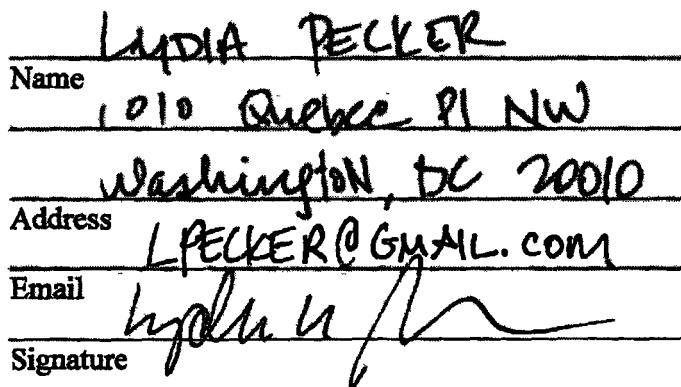 LYDIA PECKER
Name
1010 Quebec Pl NW
Washington, DC 20010
Address
LPECKER@GMAIL.COM
Email
Signature